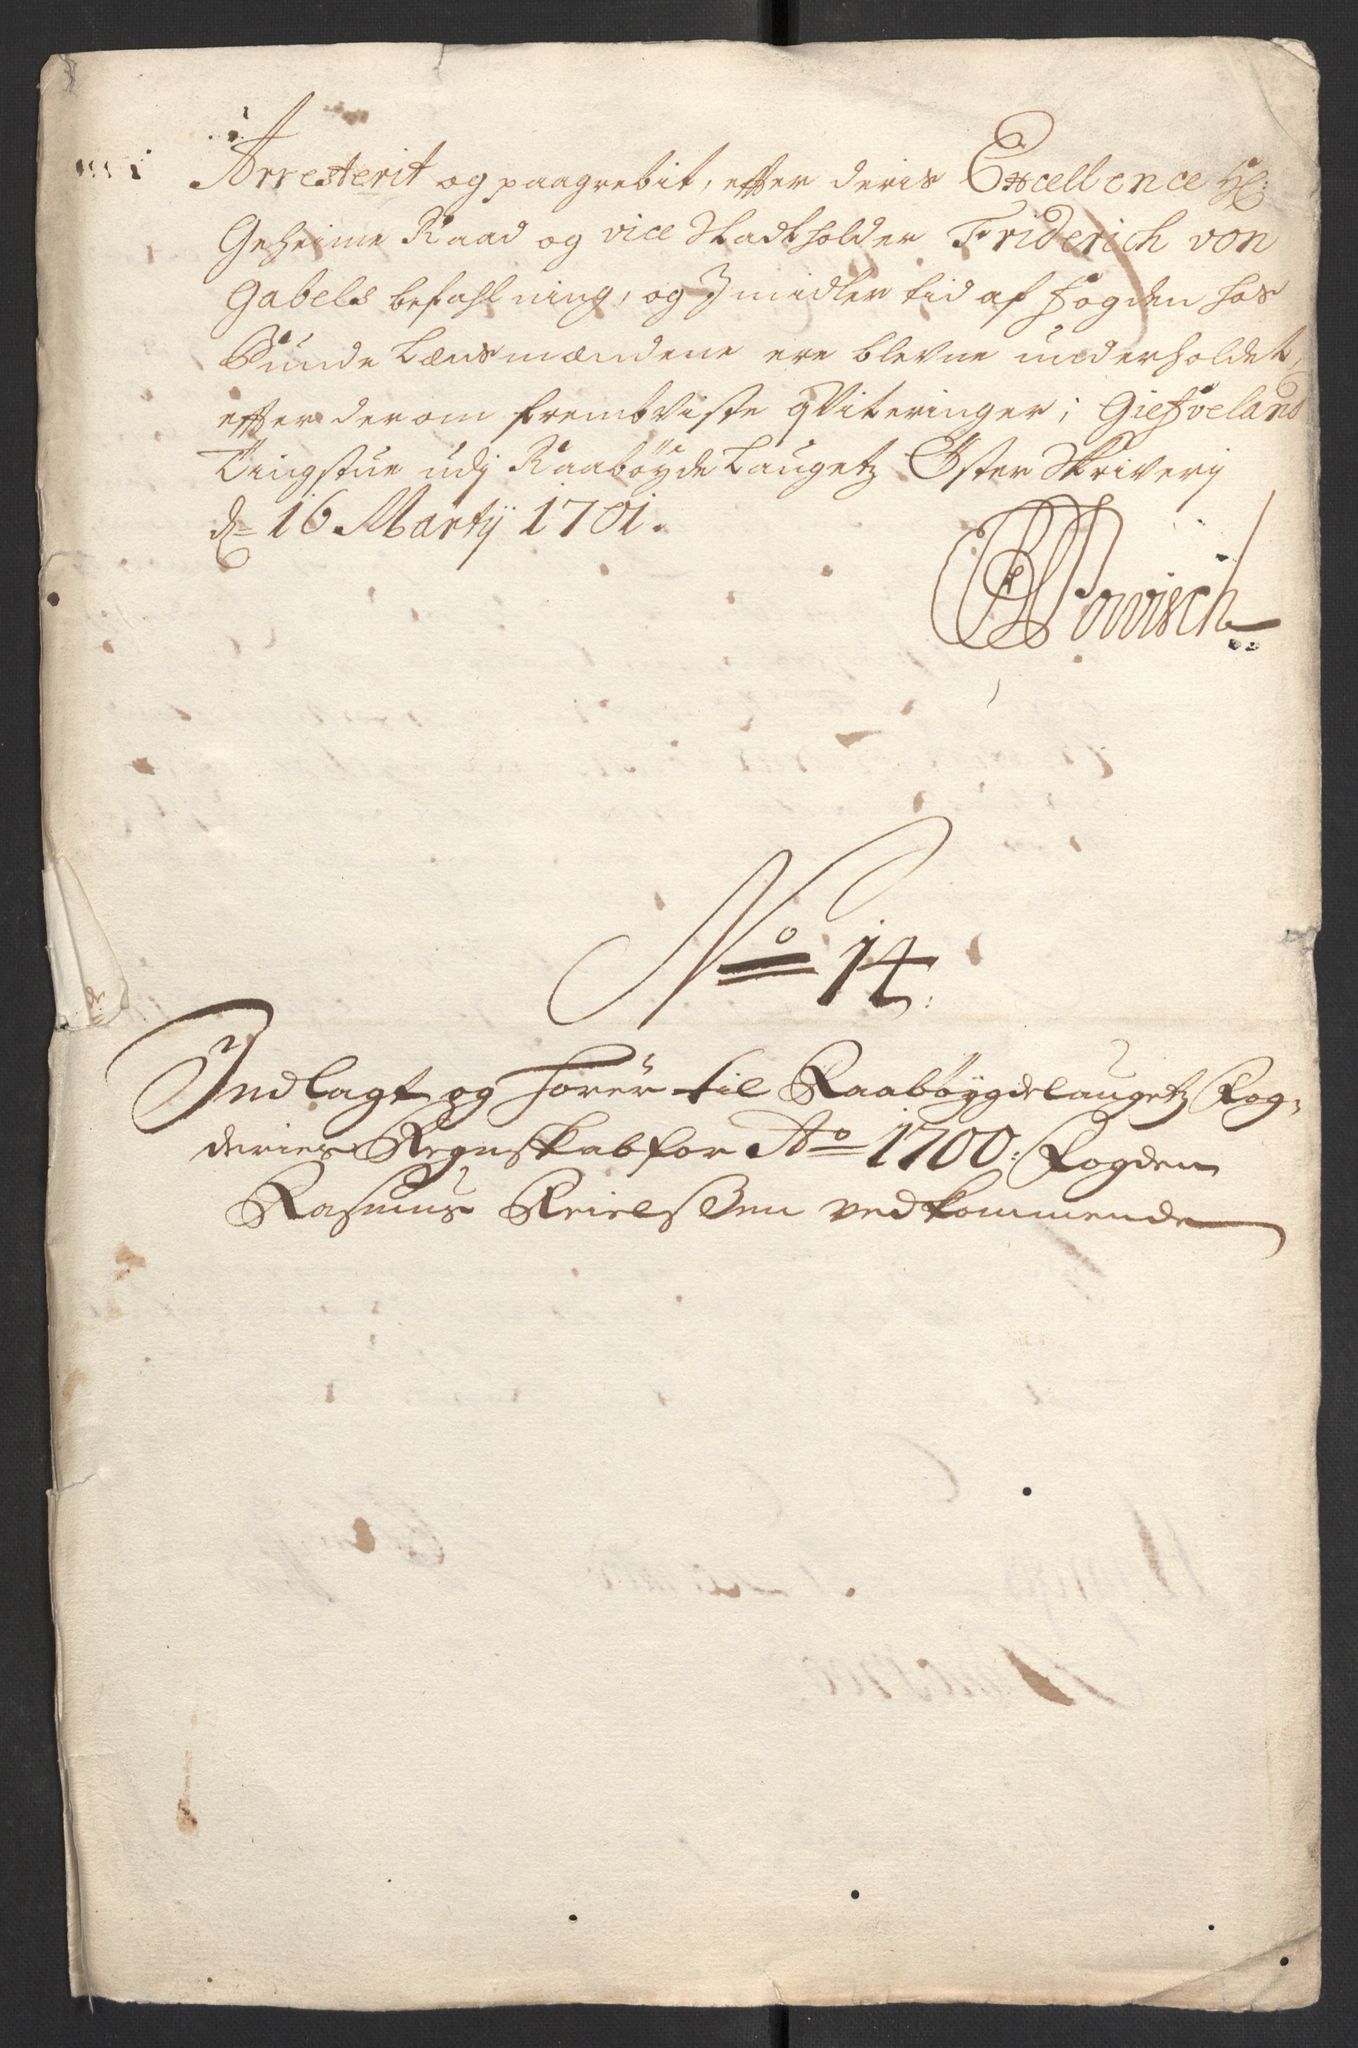 Arresterit og paagrebit, efter deris Excellence H:
Geheime Raad og vice Stadtholder Friderich von
Gabels befahlning, og Imidler tid af fogden hos
Bunde Lænsmændene ere blevne underholdet,
efter derom frembviste qviteringer; Giefveland
Tingstue udj Raabøyde Laugetz Øster Skriverij
d= 16 Martij 1701.
No 14:
Indlagt og hører til Raabøygdelaugetz Fog-
deries Regnskab for Ao 1700: Fogden
Rasmus Keielsøn vedkommende